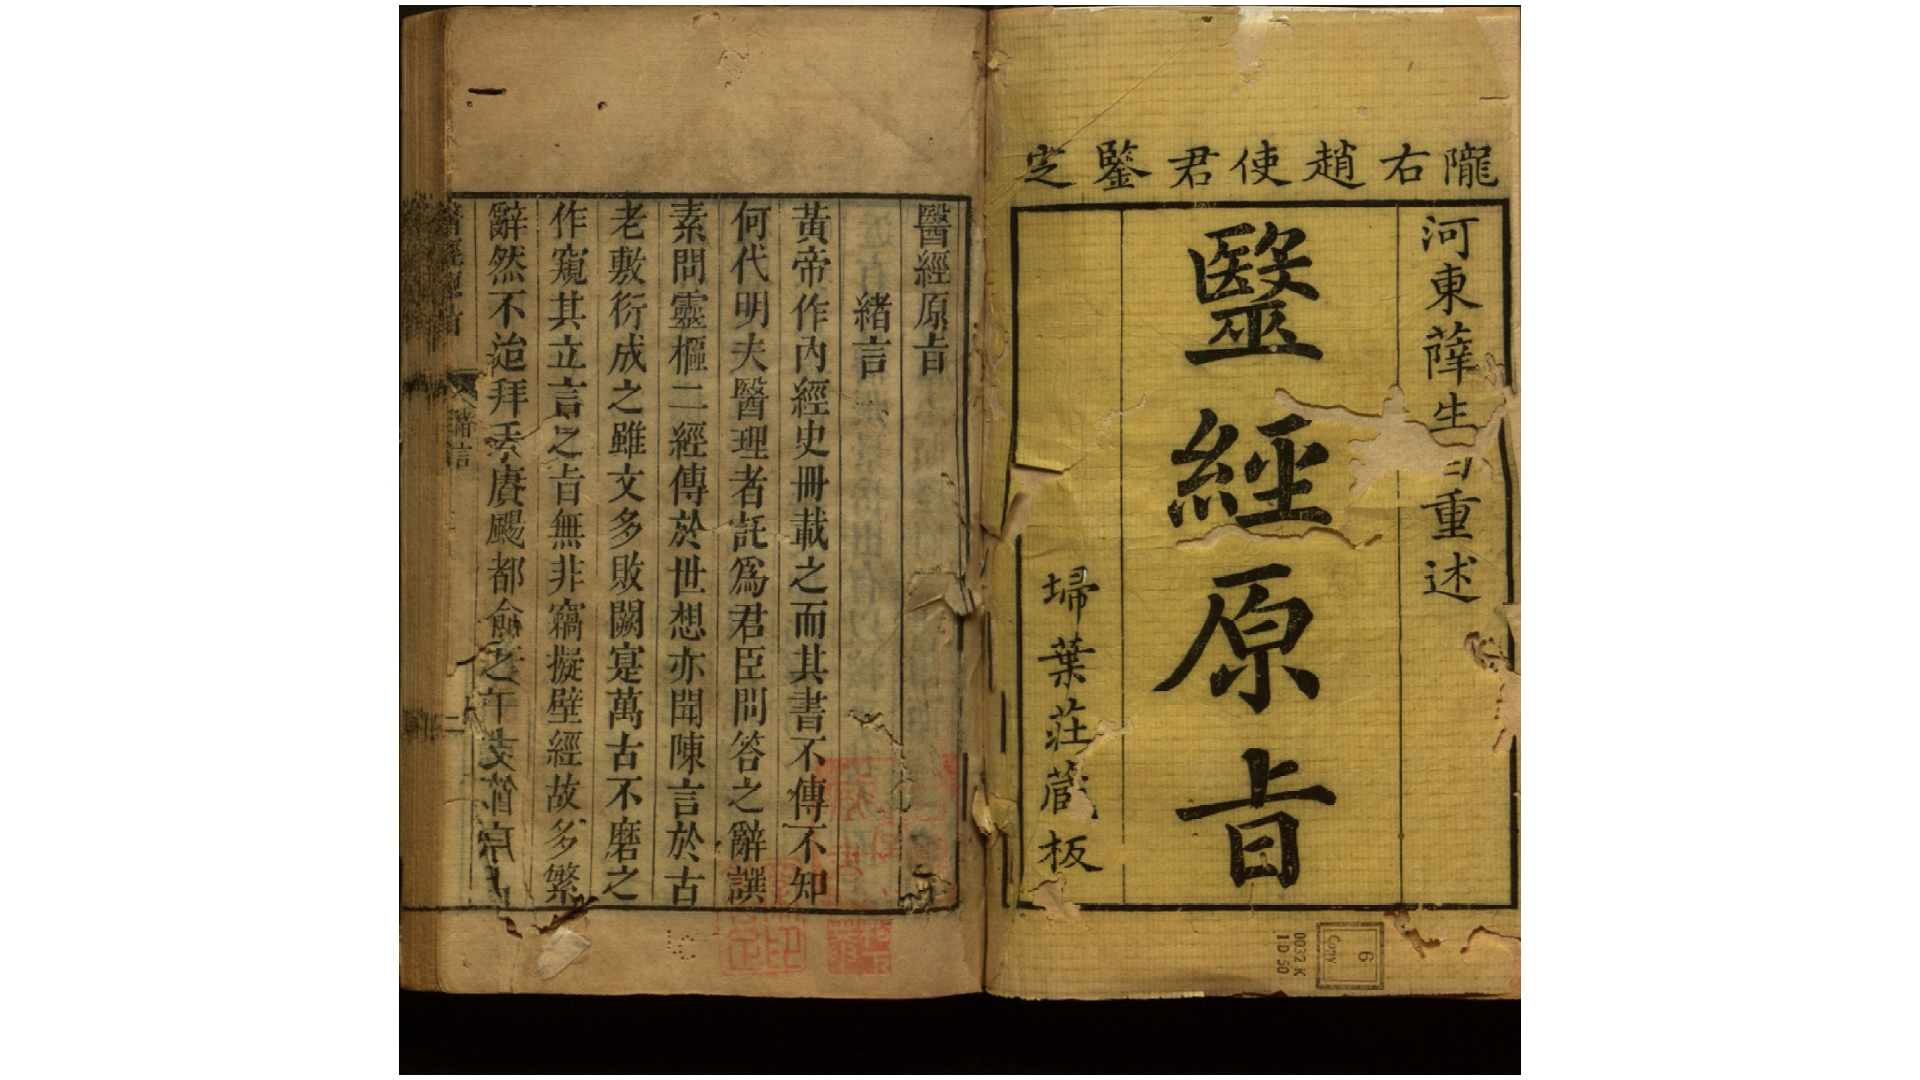 隴右趙使君鑒定
河東薛生白重述
毉經原旨
埽葉莊蔵板
6
Copy
0032 K
1D 50
醫經原旨
緒言
黃帝作內經史冊載之而其書不傳不知
何代明夫醫理者託爲君臣問答之辭譔
素問靈樞二經傳於世想亦聞陳言於古
老敷衍成之雖文多敗闕寔萬古不磨之
作窺其立言之旨無非竊擬壁經故多繁
辭然不迨拜賡颺都俞之
醫經原旨
緒言